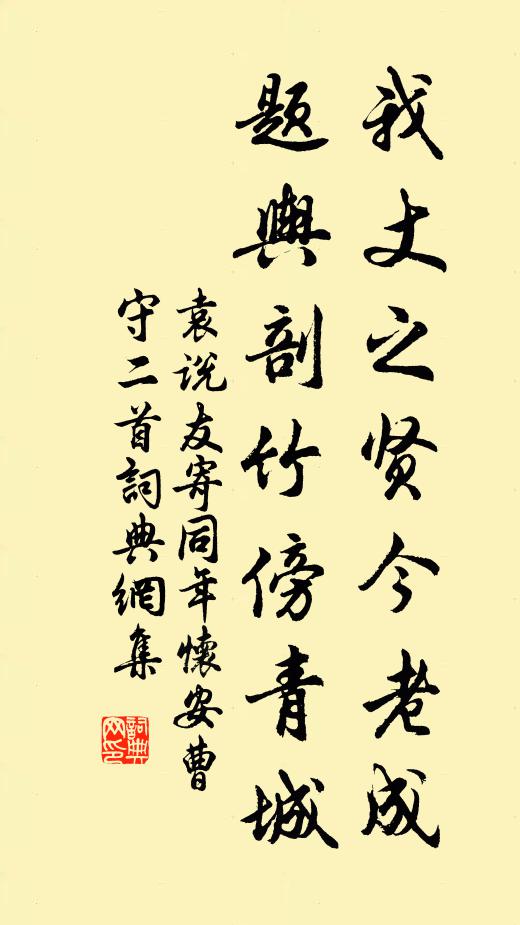 我丈之贤今老成
题舆剖竹傍青城
袁说友寄同年懷安曹
守二首詞典網集
詞典網印